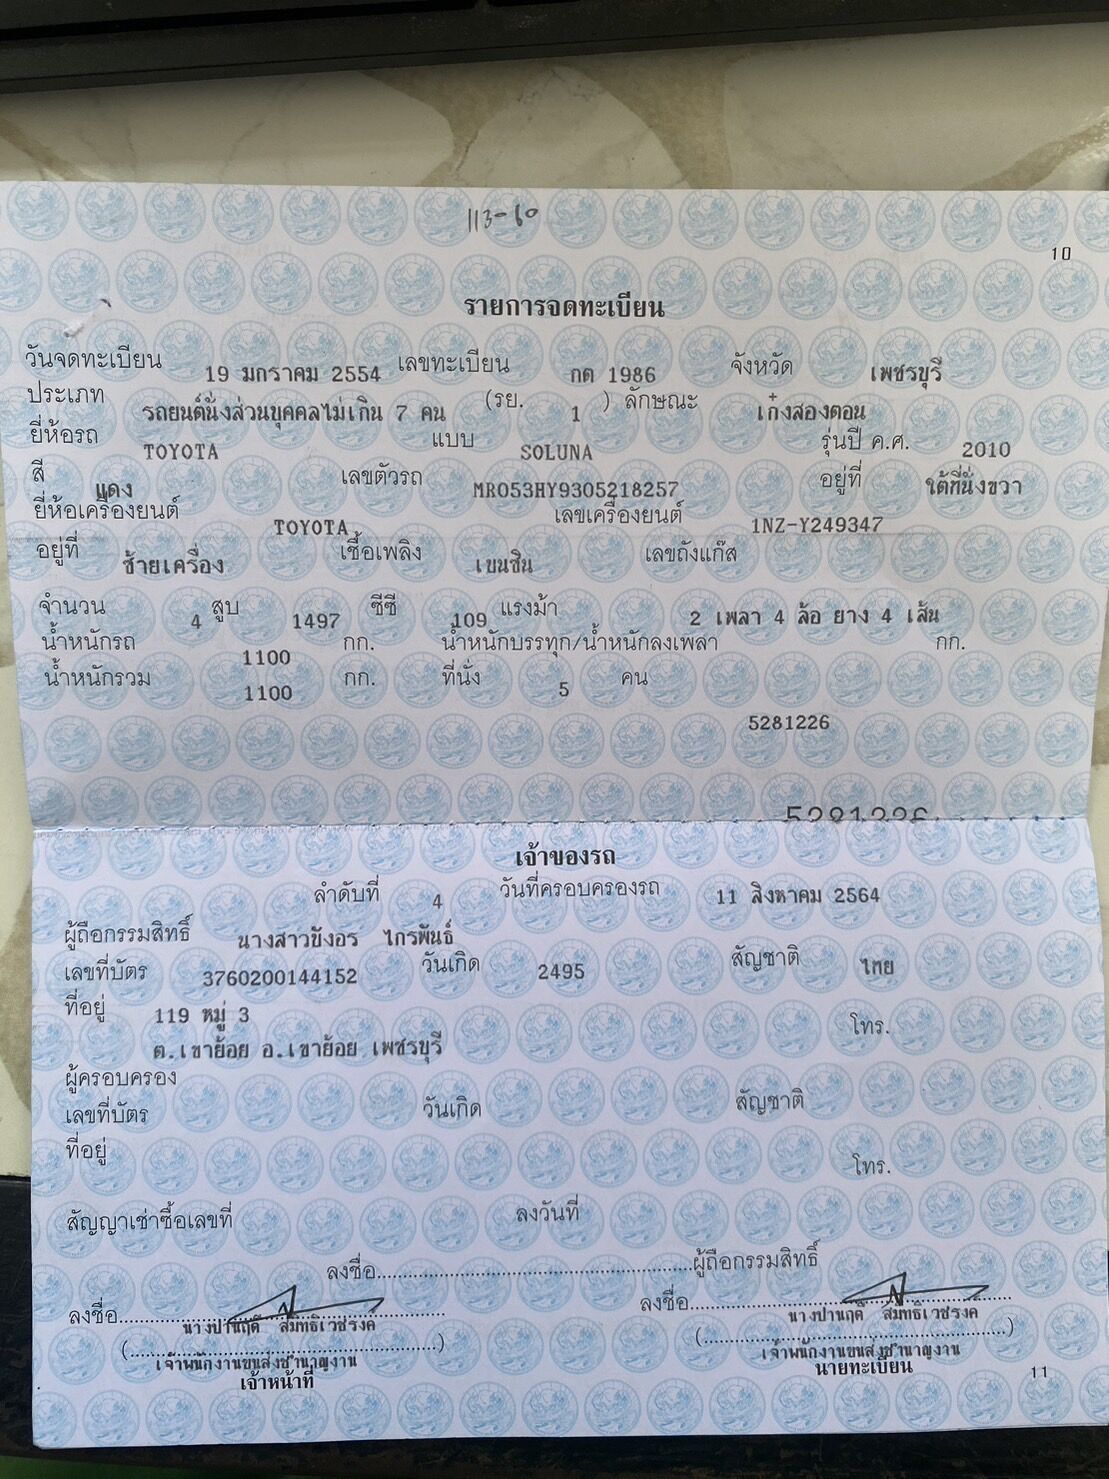 113-60
10
รายการจดทะเบียน
วันจดทะเบียน 19 มกราคม 2554 เลขทะเบียน กต 1986 จังหวัด เพชรบุรี
ประเภท รถยนต์นั่งส่วนบุคคลไม่เกิน 7 คน (รย. 1 ) ลักษณะ เก๋งสองตอน
ยี่ห้อรถ TOYOTA แบบ SOLUNA รุ่นปี ค.ศ. 2010
สี แดง เลขตัวรถ MR053HY9305218257 อยู่ที่ ใต้ที่นั่งขวา
ยี่ห้อเครื่องยนต์ TOYOTA เลขเครื่องยนต์ 1NZ-Y249347
อยู่ที่ ซ้ายเครื่อง เชื้อเพลิง เบนซิน เลขถังแก๊ส
จำนวน 4 สูบ 1497 ซีซี 109 แรงม้า 2 เพลา 4 ล้อ ยาง 4 เส้น
น้ำหนักรถ 1100 กก. น้ำหนักบรรทุก/น้ำหนักลงเพลา กก.
น้ำหนักรวม 1100 กก. ที่นั่ง 5 คน
5281226
5281226
เจ้าของรถ
ลำดับที่ 4 วันที่ครอบครองรถ 11 สิงหาคม 2564
ผู้ถือกรรมสิทธิ์ นางสาวบังอร ไกรพันธ์
เลขที่บัตร 3760200144152 วันเกิด 2495 สัญชาติ ไทย
ที่อยู่ 119 หมู่ 3 โทร.
ต.เขาย้อย อ.เขาย้อย เพชรบุรี
ผู้ครอบครอง
เลขที่บัตร วันเกิด สัญชาติ
ที่อยู่ โทร.
สัญญาเช่าซื้อเลขที่ ลงวันที่
ลงชื่อ..............................ผู้ถือกรรมสิทธิ์
ลงชื่อ.............................. ลงชื่อ..............................
นางปานฤดี สมิทธิเวชรงค์ นางปานฤดี สมิทธิเวชรงค์
(..............................) (..............................)
เจ้าพนักงานขนส่งชำนาญงาน เจ้าพนักงานขนส่งชำนาญงาน
เจ้าหน้าที่ นายทะเบียน
11